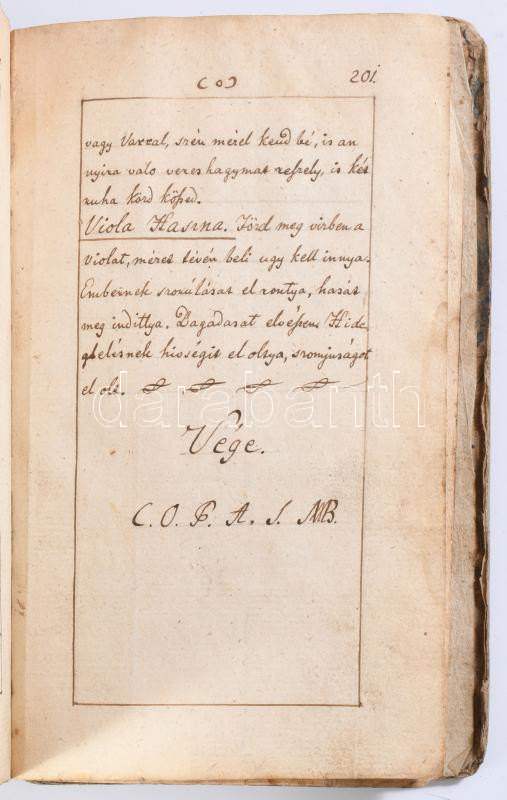 ( o )
201.
vagy Varral, szén mérel kend bé, is an
nyira valo veres hagymat reszely, is két
ruha közd kössed.
Viola Haszna. Törd meg vizben a
violat, mézet tévén beli ugy kell innya.
Embernek szorúlását el rontya, hasát
meg indittya. Dagadasat elvészen, Hide-
glelésnek hivségit el oltya, szomjuságot
el olt.
Vége.
C. O. P. A. S. MB.
darabanth